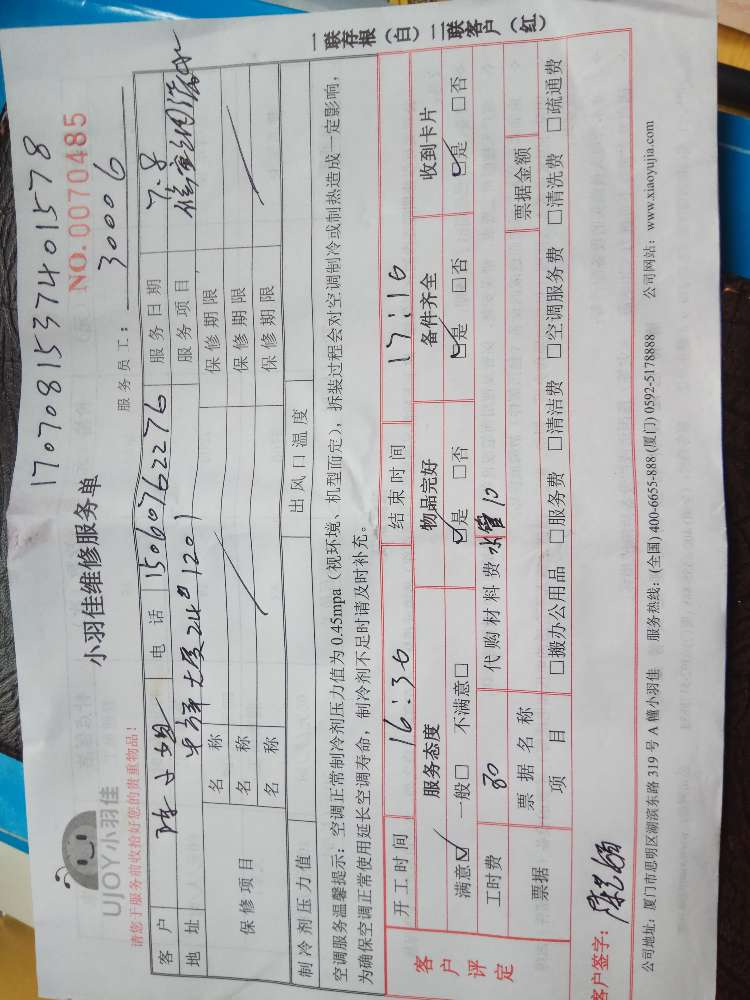 1707081537401578
UJOY小羽佳
小羽佳维修服务单
NO.0070485
请您于服务前收拾好您的贵重物品!
服务员工: 30006
客户 陈小姐 电话 15060762276 服务日期 7.8
地址 大厦24# 1201 服务项目
保修项目 名称 保修期限
名称 保修期限
名称 保修期限
制冷剂压力值 出风口温度
空调服务温馨提示:空调正常制冷剂压力值为0.45mpa(视环境、机型而定),拆装过程会对空调制冷或制热造成一定影响,
为确保空调正常使用延长空调寿命,制冷剂不足时请及时补充。
开工时间 16:36 结束时间 17:16
客户评定 服务态度 物品完好 备件齐全 收到卡片
满意☑ 一般□ 不满意□ ☑是 □否 ☑是 □否 ☑是 □否
工时费 80 代购材料费 水管10
票据 票据名称 票据金额
项目 □搬办公用品 □服务费 □清洁费 □空调服务费 □清洗费 □疏通费
客户签字:
公司地址:厦门市思明区湖滨东路319号A幢小羽佳 服务热线:(全国)400-6655-888(厦门)0592-5178888 公司网站:www.xiaoyujia.com
一联存根(白)二联客户(红)